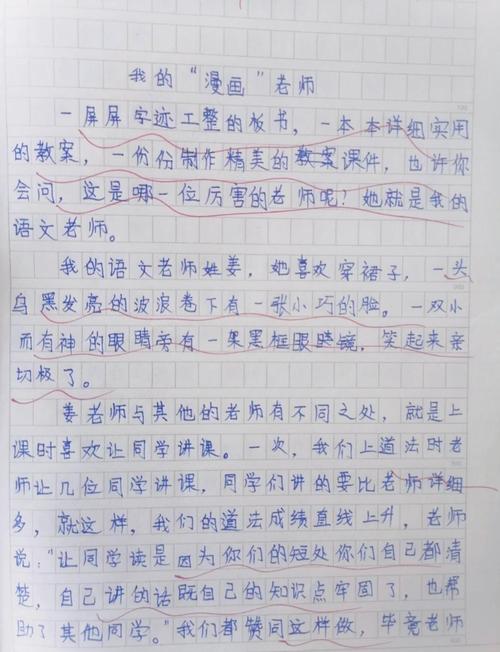 我的“漫画”老师
一屏屏字迹工整的板书，一本本详细实用
的教案，一份份制作精美的教案课件，也许你
会问，这是哪一位厉害的老师呢？她就是我的
语文老师。
我的语文老师姓姜，她喜欢穿裙子，一头
乌黑发亮的波浪卷下有一张小巧的脸。一双小
而有神的眼睛旁有一架黑框眼睛镜，笑起来亲
切极了。
姜老师与其他的老师有不同之处，就是上
课时喜欢让同学讲课。一次，我们上道法时老
师让几位同学讲课，同学们讲的要比老师详细
多，就这样，我们的道法成绩直线上升，老师
说：“让同学读是因为你们的短处你们自己都清
楚，自己讲的话既自己的知识点牢固了，也帮
助了其他同学。”我们都赞同这样做，毕竟老师